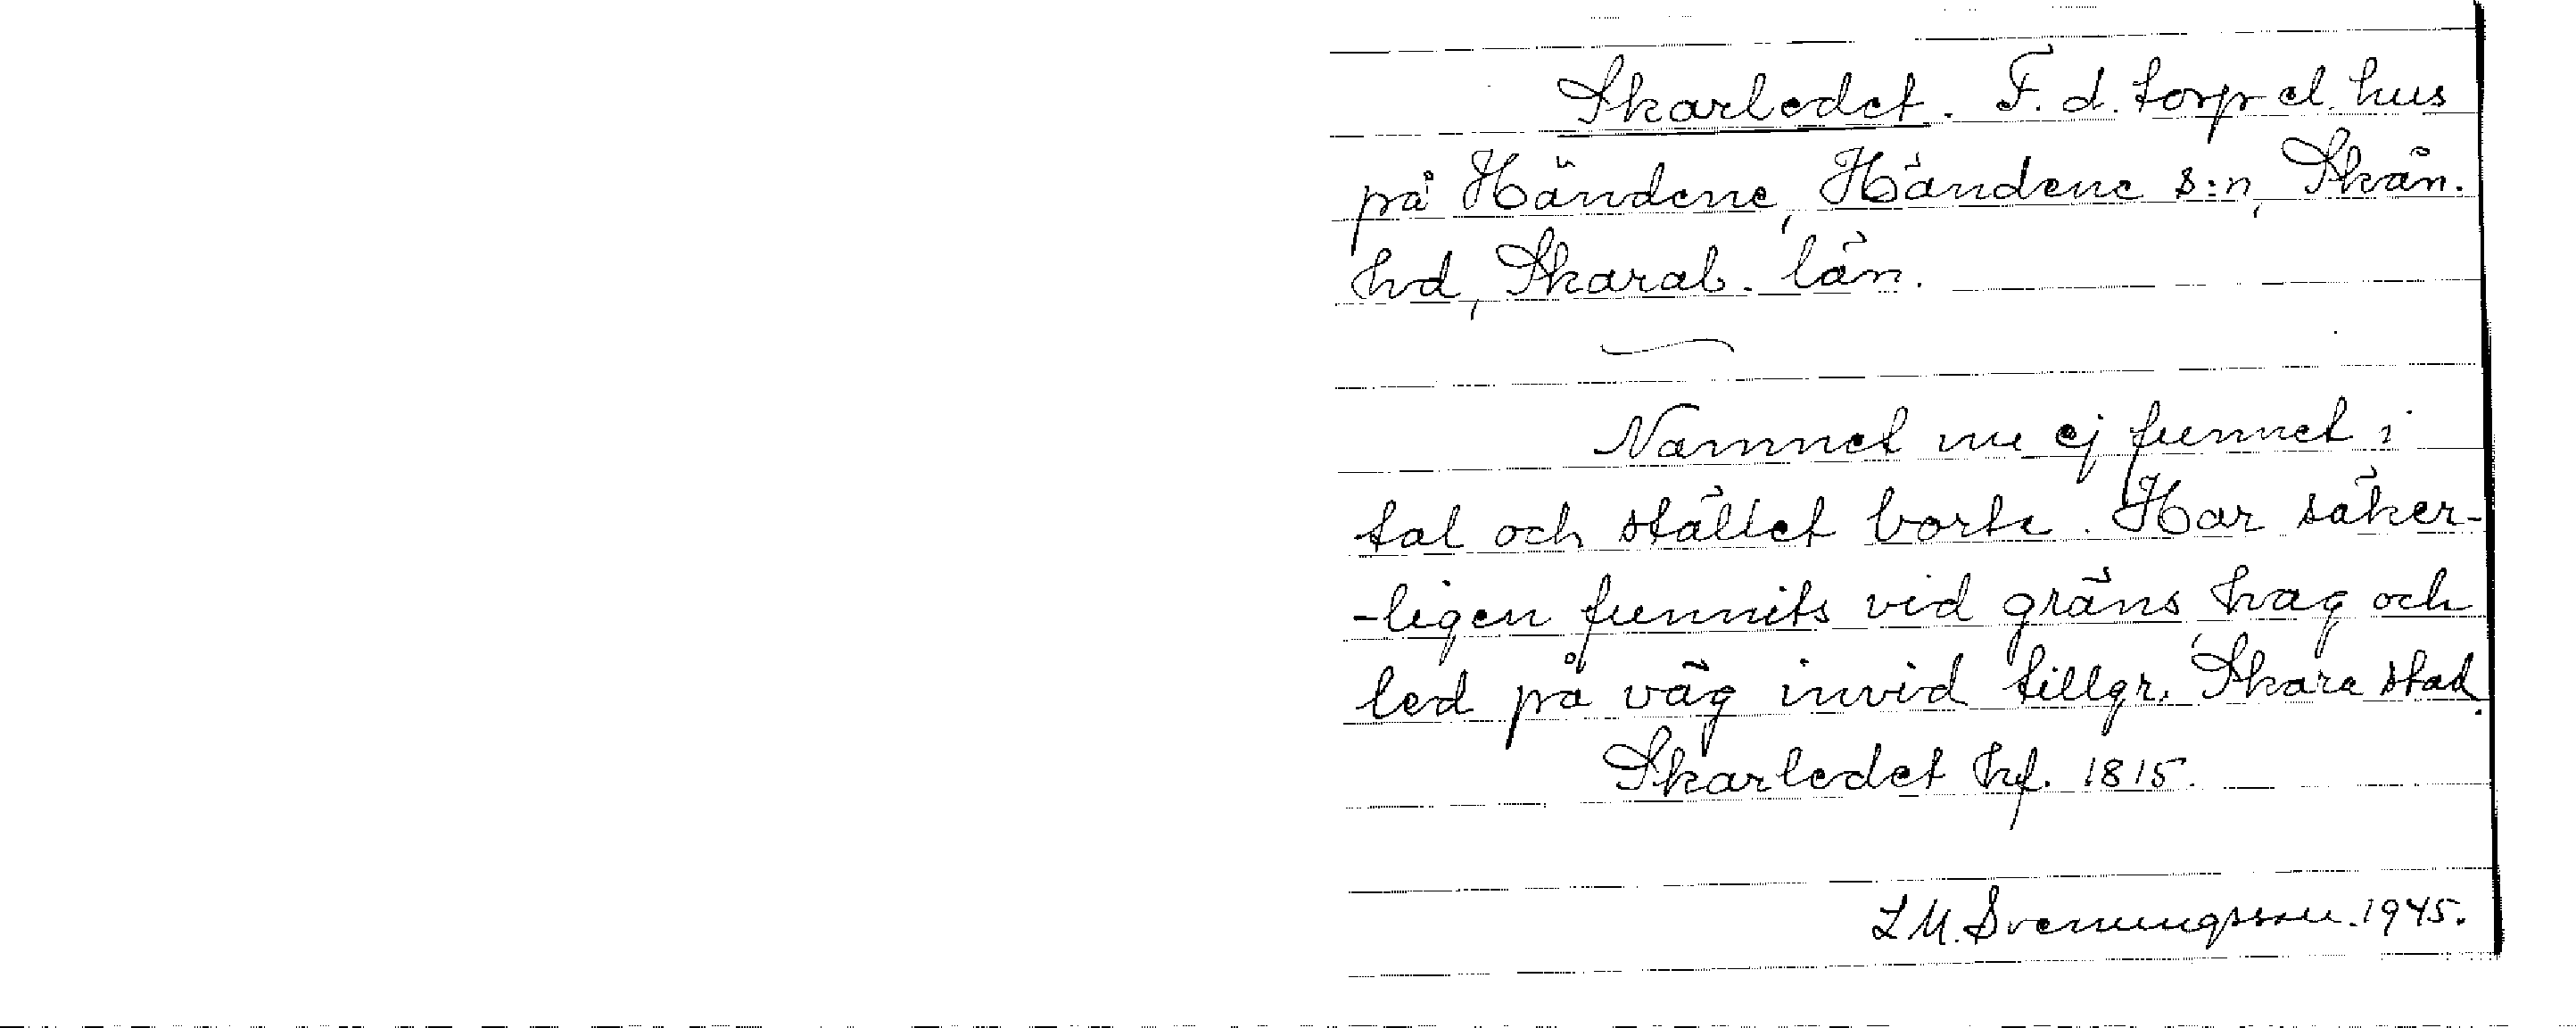 Skarledet. F. d. torp el. hus
på Händene, Händene s:n, Skån.
hd, Skarab. län.
Namnet nu ej funnet i
tal och stället borta. Har säker-
-ligen funnits vid gräns, hag och
led på väg invid tillgr. Skara stad.
Skarledet hf. 1815.
L M. Svenungsson. 1945.